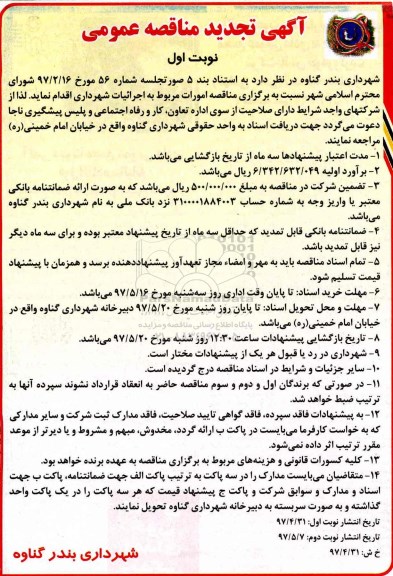 آگهی تجدید مناقصه عمومی
نوبت اول
شهرداری بندر گناوه در نظر دارد به استناد بند ۵ صورتجلسه شماره ۵۶ مورخ ۹۷/۲/۱۶ شورای
محترم اسلامی شهر نسبت به برگزاری مناقصه امورات مربوط به اجرائیات شهرداری اقدام نماید. لذا از
شرکتهای واجد شرایط دارای صلاحیت از سوی اداره تعاون، کار و رفاه اجتماعی و پلیس پیشگیری ناجا
دعوت می‌گردد جهت دریافت اسناد به واحد حقوقی شهرداری گناوه واقع در خیابان امام خمینی(ره)
مراجعه نمایند.
۱- مدت اعتبار پیشنهادها سه ماه از تاریخ بازگشایی می‌باشد.
۲- برآورد اولیه ۶/۳۴۲/۶۳۲/۰۴۹ ریال می‌باشد.
۳- تضمین شرکت در مناقصه به مبلغ ۵۰۰/۰۰۰/۰۰۰ ریال می‌باشد که به صورت ارائه ضمانتنامه بانکی
معتبر یا واریز وجه به شماره حساب ۳۱۰۰۰۰۱۸۸۴۰۰۳ نزد بانک ملی به نام شهرداری بندر گناوه
می‌باشد.
۴- ضمانتنامه بانکی قابل تمدید که حداقل سه ماه از تاریخ پیشنهاد معتبر بوده و برای سه ماه دیگر
نیز قابل تمدید باشد.
۵- تمام اسناد مناقصه باید به مهر و امضاء مجاز تعهدآور پیشنهاددهنده برسد و همزمان با پیشنهاد
قیمت تسلیم شود.
۶- مهلت خرید اسناد: تا پایان وقت اداری روز سه‌شنبه مورخ ۹۷/۵/۱۶ می‌باشد.
۷- مهلت و محل تحویل اسناد: تا پایان روز شنبه مورخ ۹۷/۵/۲۰ دبیرخانه شهرداری گناوه واقع در
خیابان امام خمینی(ره) می‌باشد.
۸- تاریخ بازگشایی پیشنهادات ساعت ۱۲:۳۰ روز شنبه مورخ ۹۷/۵/۲۰ می‌باشد.
۹- شهرداری در رد یا قبول هر یک از پیشنهادات مختار است.
۱۰- سایر جزئیات و شرایط در اسناد مناقصه درج گردیده است.
۱۱- در صورتی که برندگان اول و دوم و سوم مناقصه حاضر به انعقاد قرارداد نشوند سپرده آنها به
ترتیب ضبط خواهد شد.
۱۲- به پیشنهادات فاقد سپرده، فاقد گواهی تایید صلاحیت، فاقد مدارک ثبت شرکت و سایر مدارکی
که به خواست کارفرما می‌بایست در پاکت ب ارائه گردد، مخدوش، مبهم و مشروط و یا دیرتر از موعد
مقرر ترتیب اثر داده نمی‌شود.
۱۳- کلیه کسورات قانونی و هزینه‌های مربوط به برگزاری مناقصه به عهده برنده خواهد بود.
۱۴- متقاضیان می‌بایست مدارک را در سه پاکت به ترتیب پاکت الف جهت ضمانتنامه، پاکت ب جهت
اسناد و مدارک و سوابق شرکت و پاکت ج پیشنهاد قیمت که هر سه پاکت را در یک پاکت واحد
گذاشته و به صورت سربسته به دبیرخانه شهرداری گناوه تحویل نمایند.
تاریخ انتشار نوبت اول: ۹۷/۴/۳۱
تاریخ انتشار نوبت دوم: ۹۷/۵/۷
خ ش: ۹۷/۴/۳۱
شهرداری بندر گناوه